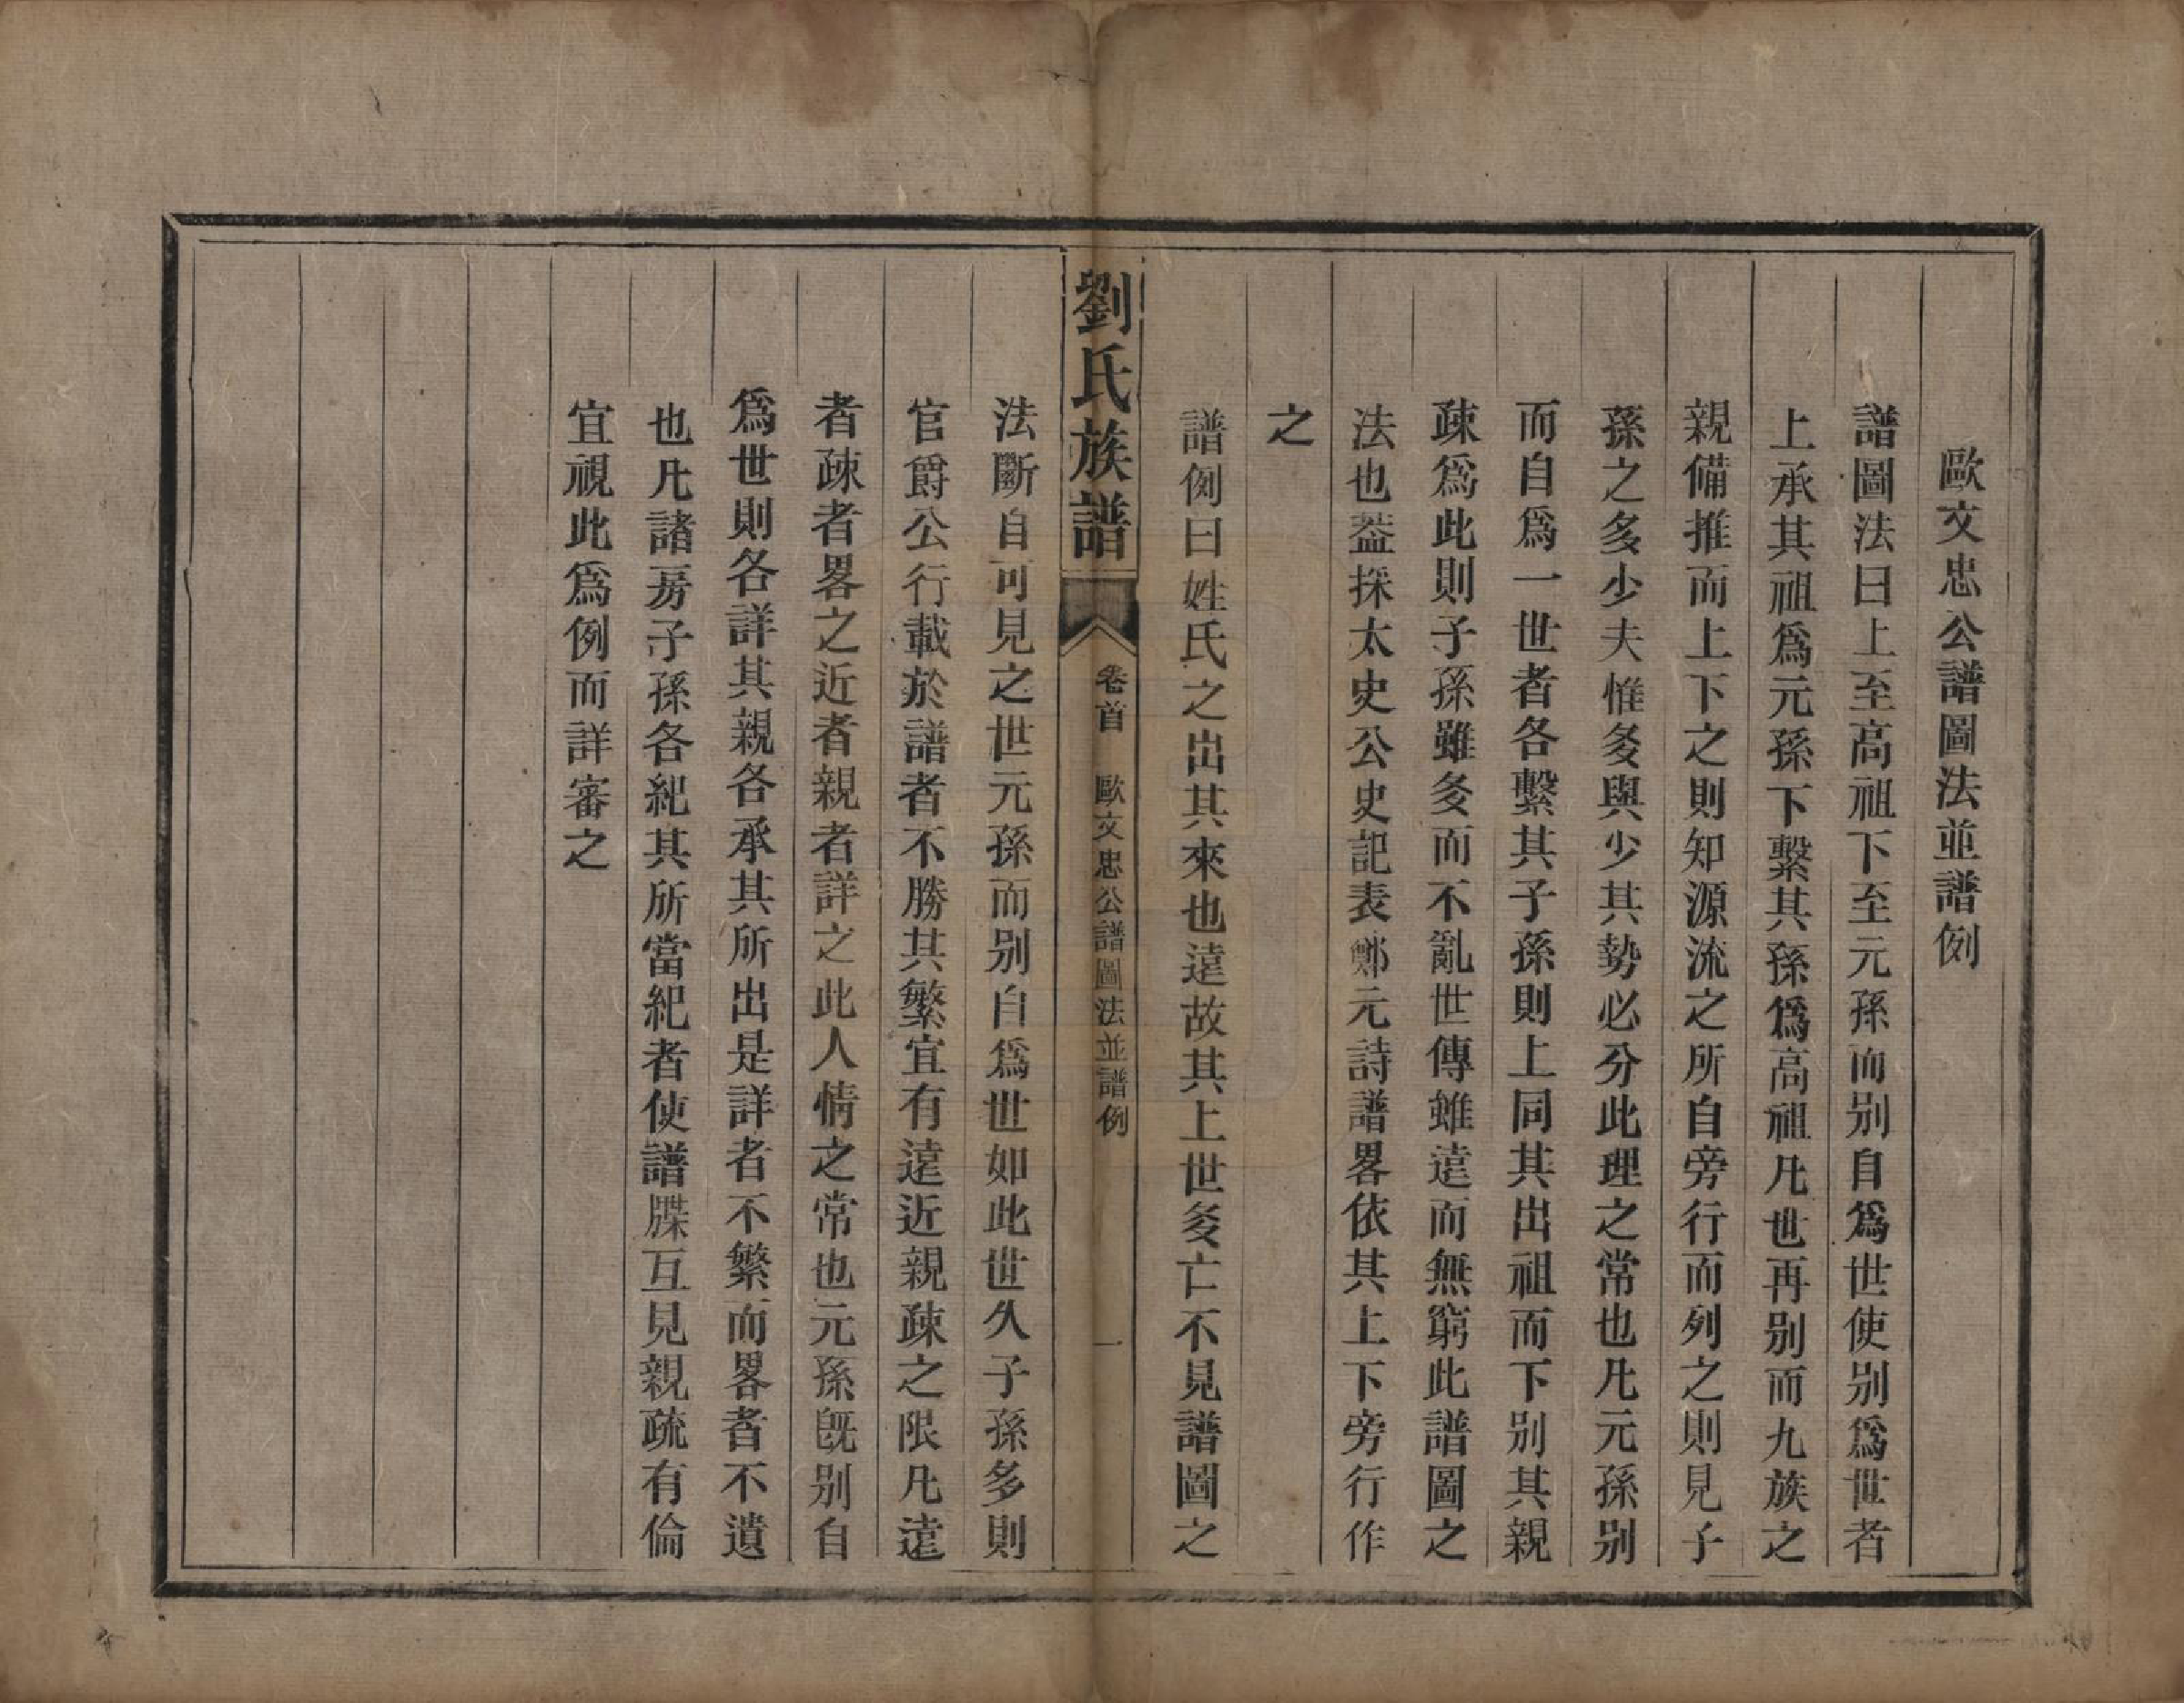 歐文忠公譜圖法並譜例
譜圖法曰上至高祖下至元孫而别自爲世使别爲世者
上承其祖爲元孫下繫其孫爲高祖凡世再别而九族之
親備推而上下之則知源流之所自旁行而列之則見子
孫之多少夫惟多與少其勢必分此理之常也凡元孫别
而自爲一世者各繫其子孫則上同其出祖而下别其親
疎爲此則子孫雖多而不亂世傳雖遠而無窮此譜圖之
法也葢採太史公史記表鄭元詩譜畧依其上下旁行作
之
譜例曰姓氏之出其來也遠故其上世多亡不見譜圖之
劉氏族譜 卷首 歐文忠公譜圖法並譜例 一
法斷自可見之世元孫而别自爲世如此世久子孫多則
官爵公行載於譜者不勝其繁宜有遠近親疎之限凡遠
者疎者畧之近者親者詳之此人情之常也元孫旣别自
爲世則各詳其親各承其所出是詳者不繁而畧者不遺
也凡諸房子孫各紀其所當紀者使譜牒互見親疏有倫
宜視此爲例而詳審之